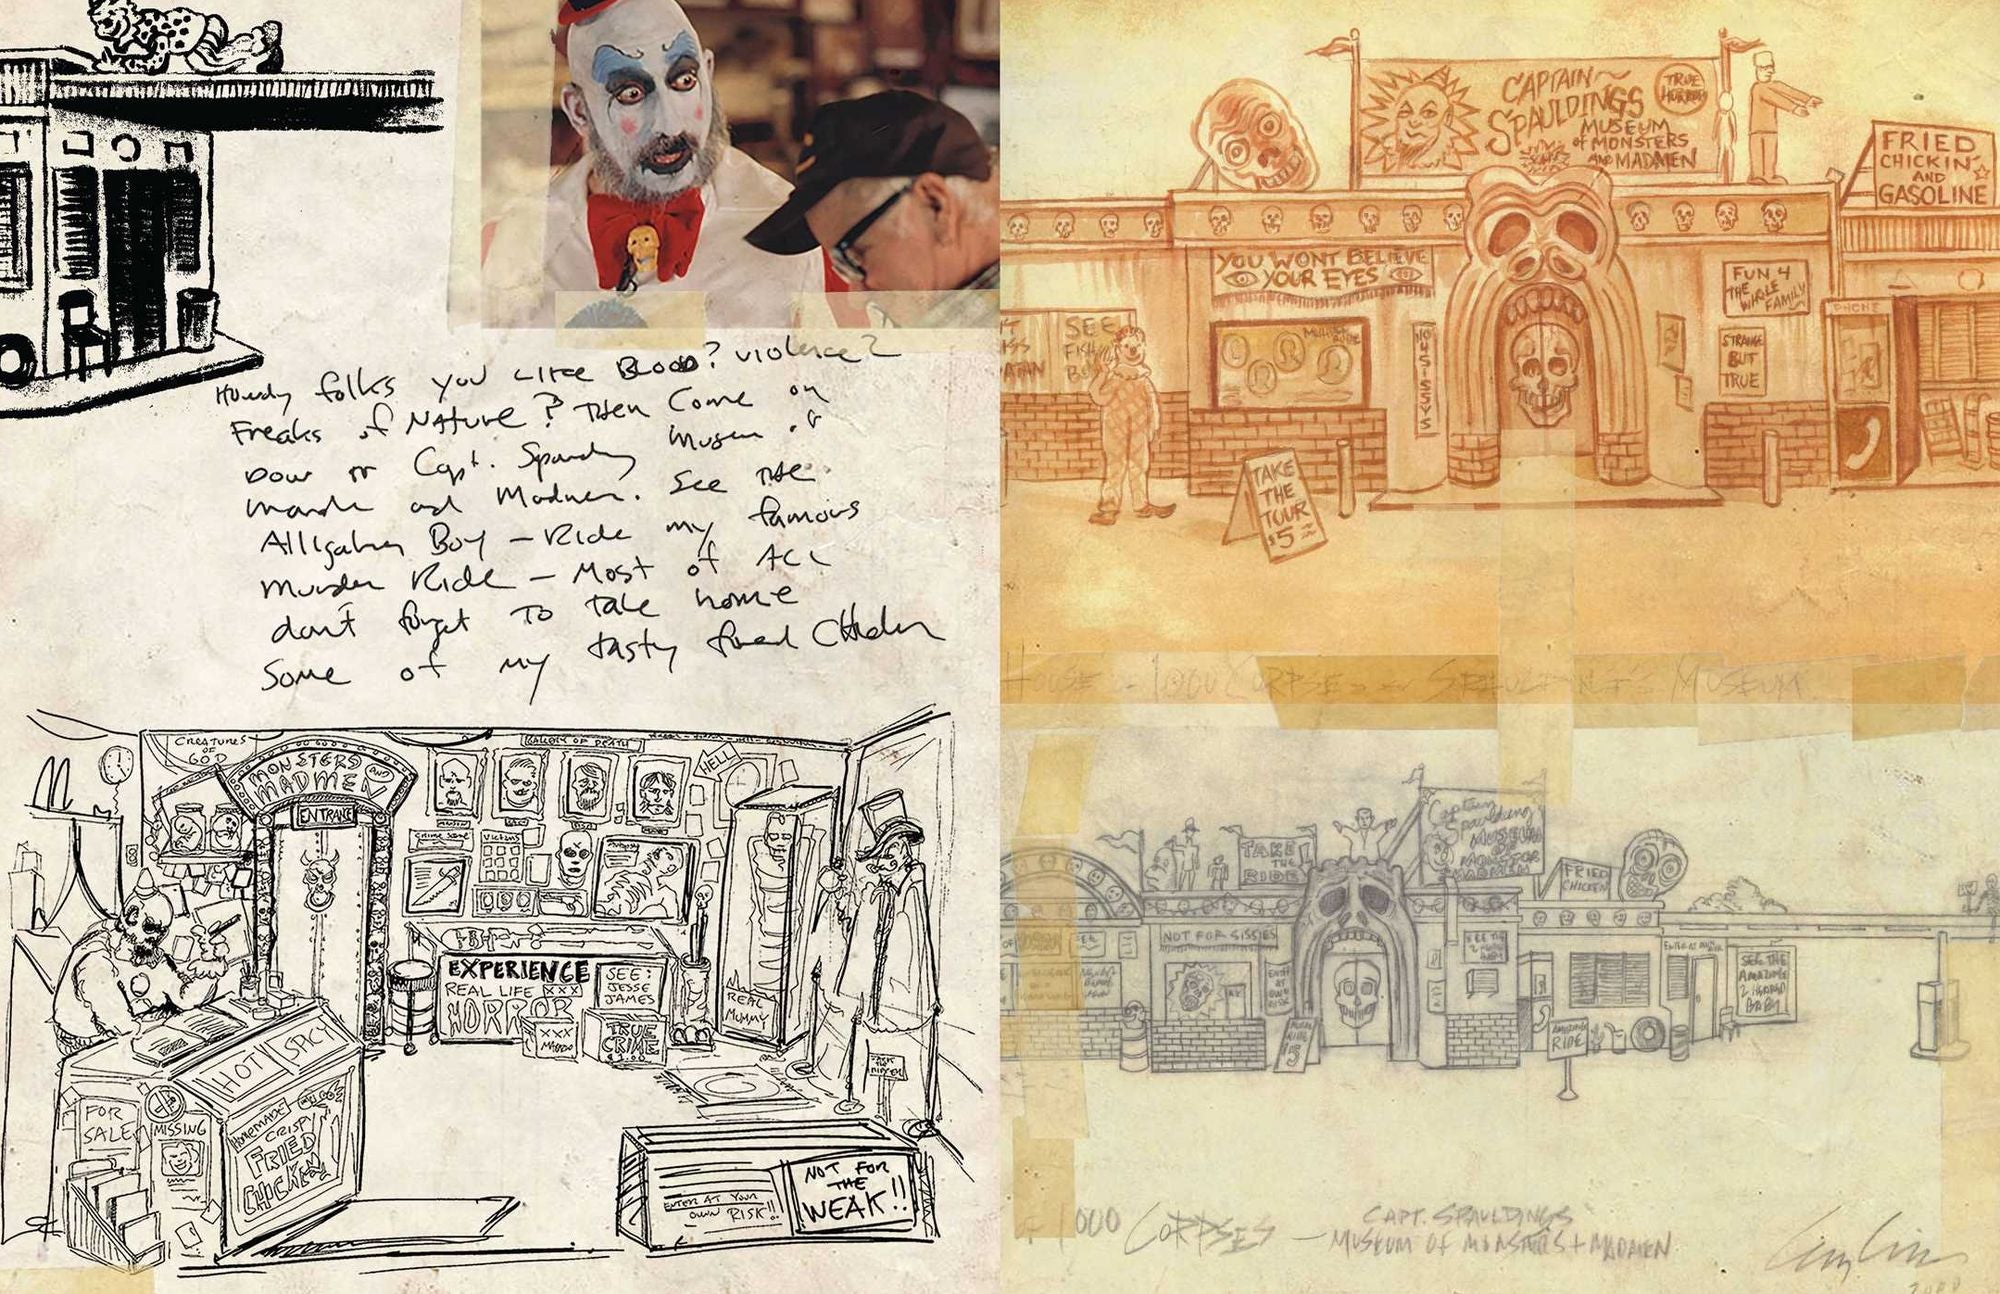 Howdy folks you Like Blood? violence?
Freaks of Nature? Then Come on
Dow Capt.
and See The
Alligator Boy - Ride my famous
Murder Ride - Most of ALL
don't forget To take home
Some of my tasty
CREATURES
OF
GOD
MONSTERS
AND
MADMEN
ENTRANCE
GALLERY OF DEATH
HELL
CRIME SCENE
VICTIMS
EXPERIENCE
REAL LIFE XXX
HORROR
SEE:
JESSE
JAMES
XXX
TRUE
CRIME
REAL
MUMMY
HOT! SPICY
HOMEMADE
CRISPY
FRIED
CHICKEN
FOR
SALE
MISSING
ENTER AT YOUR
OWN RISK!!
NOT FOR
THE
WEAK!!
CAPTAIN
SPAULDINGS
MUSEUM
of MONSTERS
AND MADMEN
TRUE
HORROR
FRIED
CHICKIN
AND
GASOLINE
YOU WONT BELIEVE
YOUR EYES
FUN 4
THE
WHOLE
FAMILY
STRANGE
BUT
TRUE
PHONE
SEE
NO SISSYS
TAKE
THE
TOUR
$5
HOUSE 1000 CORPSES SPAULDING'S MUSEUM
TAKE
THE
RIDE
Captain
Spaulding
MUSEUM
OF
MONSTER
MADMEN
FRIED
CHICKEN
NOT FOR SISSIES
SEE THE
AMAZING
2 HEADED
BABY
RIDE
1000 CORPSES - CAPT. SPAULDINGS
MUSEUM OF MONSTERS + MADMEN
2000